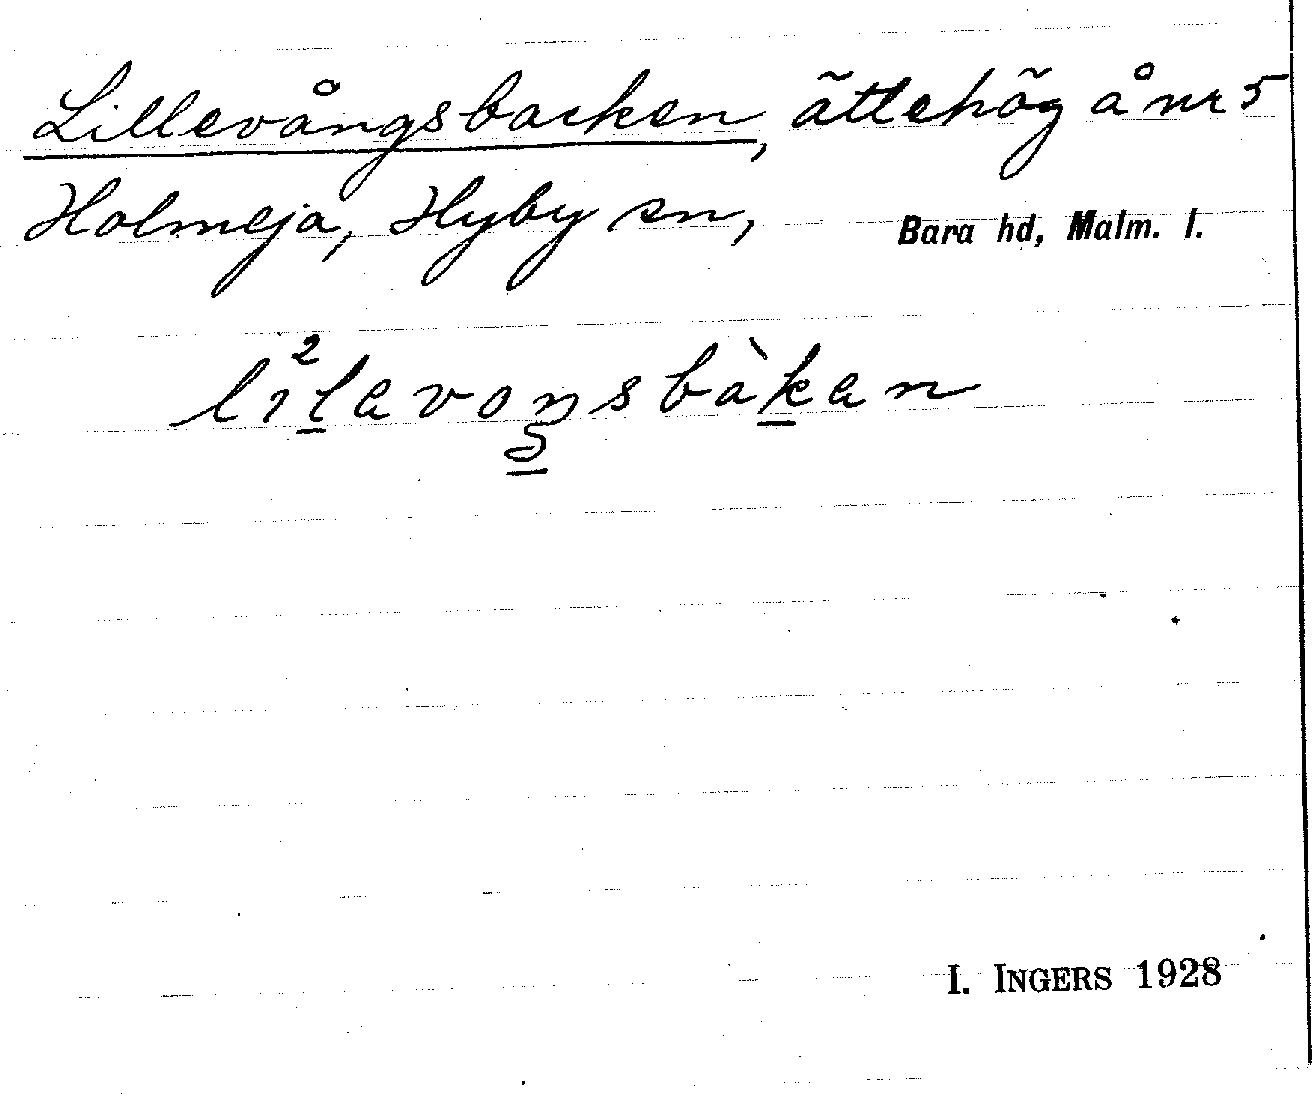 Lillevångsbacken, ättehög å nr 5
Holmeja, Hyby sn, Bara hd, Malm. l.
I. INGERS 1928